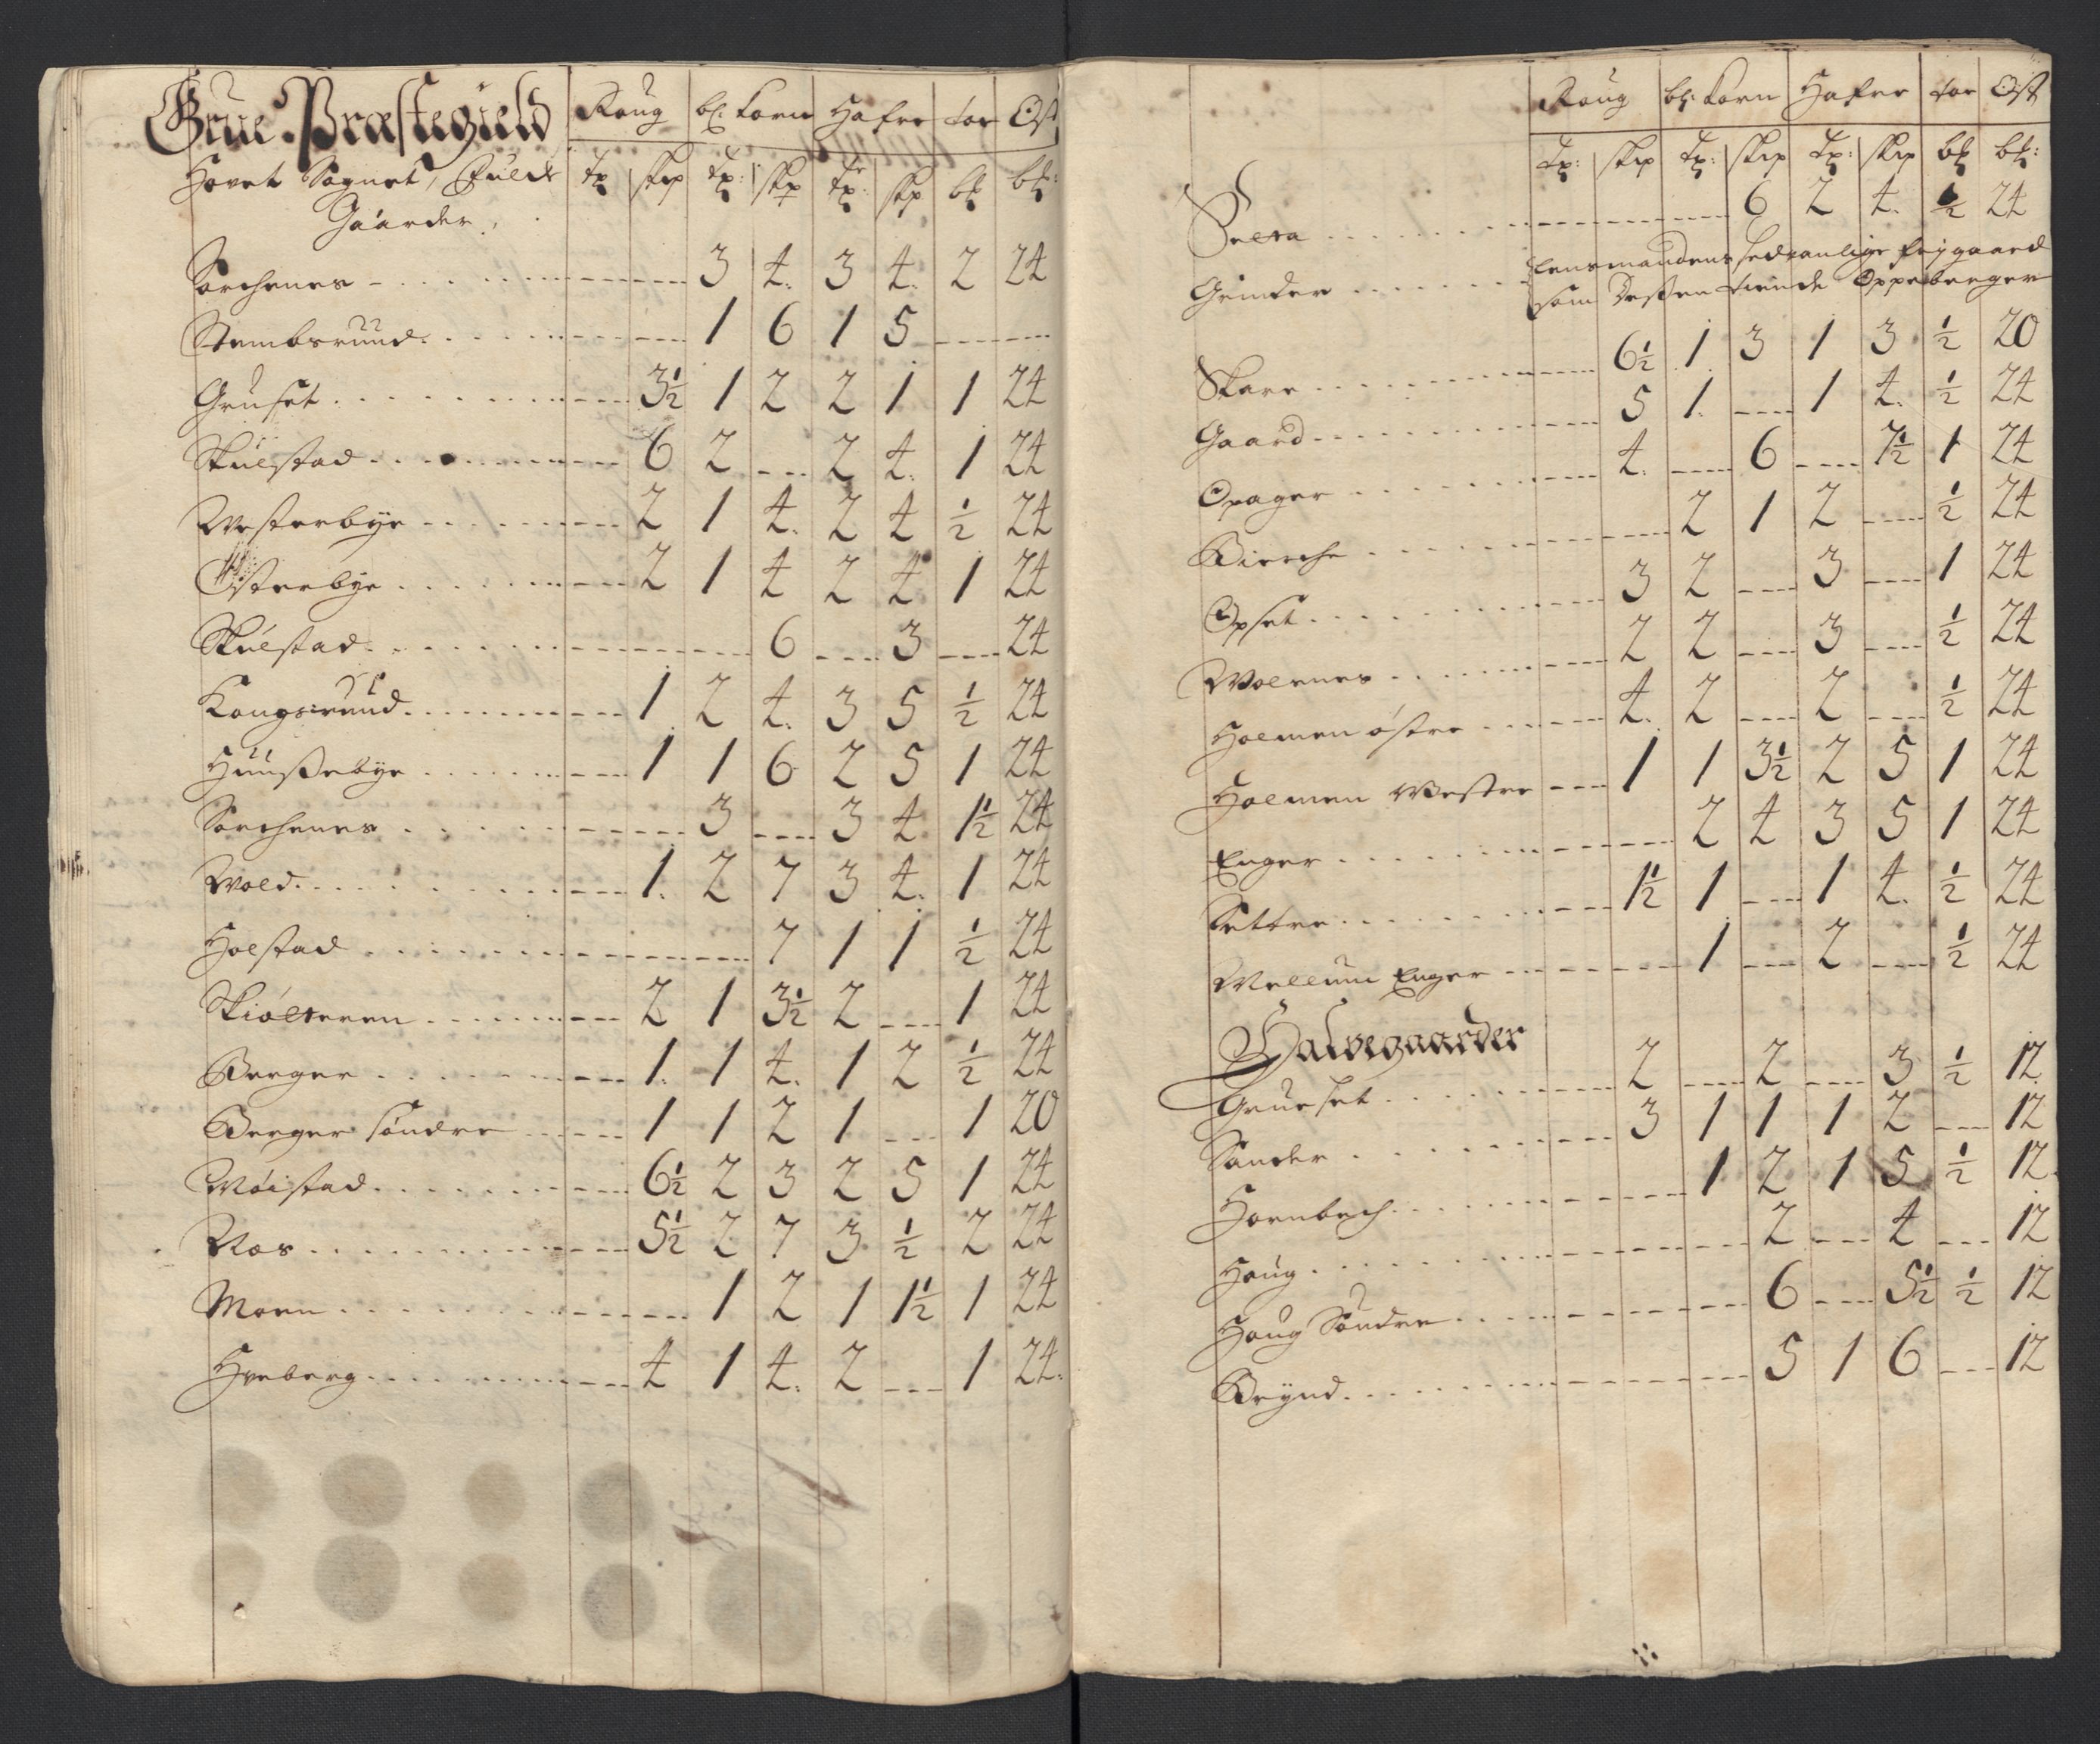 Grue Præstegield
Roug | bl: Korn | Hafre | tor | Ost
Hovet Sognet, Fulde
Gaarder
tø | skp | tø: | skp | tø: | skp | bl | bl:
Sorchenes - - - 3 4. 3 4. 2 24
Stembsruud - - - 1 6 1 5 - - -
Gruset - - - 3½ 1 2 2 1 1 24
Skulstad - - - 6 2 - - - 2 4. 1 24
Westerbye - - - 2 1 4. 2 4 ½ 24
Østerbye - - - 2 1 4 2 4 1 24
Skulstad - - - 6 - - - 3 - - - 24
Kongsruud - - - 1 2 4. 3 5 ½ 24
Huussebye - - - 1 1 6 2 5 1 24
Sorchenes - - - 3 - - - 3 4 1½ 24
Wold - - - 1. 2 7 3 4. 1 24
Holstad - - - 7 1 1 ½ 24
Skiølteren - - - 2 1 3½ 2 - - - 1 24
Berger - - - 1. 1 4. 1 2 ½ 24
Berger søndre - - - 1 1 2 1 - - - 1 20
Møistad - - - 6½ 2 3 2 5 1 24
Nos - - - 5½ 2 7 3 ½ 2 24
Moen - - - 1 2 1 1½ 1 24
Hveberg - - - 4 1 4. 2 - - - 1 24.
Roug | bl: Korn | Hafre | tor | Ost
tø: | skp | tø: | skp | tø: | skp | bl | bl:
- - - 6 2 4. ½ 24
Grinder - - - Lensmandens sedvanlige frigaard
som dessen tiende oppeberger
Skare - - - 6½ 1 3 1 3 ½ 20
Gaard - - - 5 1. - - - 1 4. ½ 24
Opager - - - 4. - - - 6 - - - 7½ 1 24
Bierche - - - 2 1 2 - - - ½ 24
Opset - - - 3 2 - - - 3 - - - 1 24
Wolenes - - - 2 2 - - - 3 - - - ½ 24
Holmen østre - - - 4. 2 - - - 2 - - - ½ 24
Holmen Westre - - - 1 1 3½ 2 5 1 24
Enger - - - 2 4 3 5 1 24
Settre - - - 1½ 1 - - - 1 4. ½ 24
Mellum Enger - - - 1 - - - 2 - - - ½ 24
Halvegaarder
Grueset - - - 2 - - - 2 - - - 3 ½ 12
Sander - - - 3 1 1 1 2 - - - 12
Hornbech - - - 1 2 1 5 ½ 12.
Houg - - - 2 - - - 4 - - - 12
Houg Søndre - - - 6 - - - 5½ ½ 12
Brynd - - - 5 1 6 - - - 12